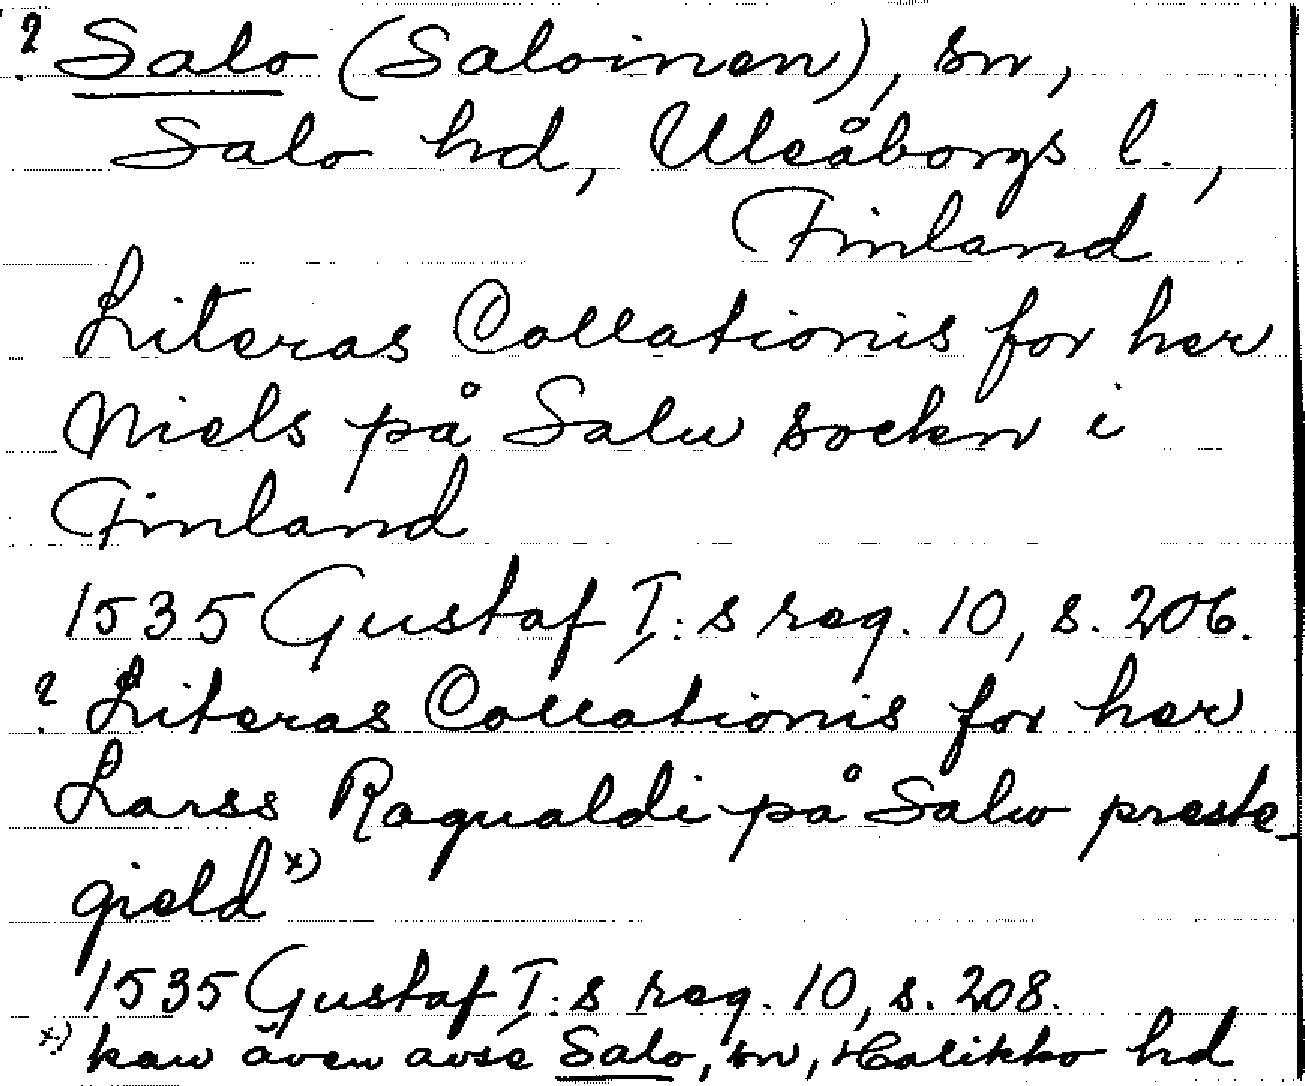 ? Salo (Saloinen), sn,
Salo hd, Uleåborgs l.,
Finland
Literas Collationis for her
Niels på Salu sockn i
Finland
1535 Gustaf I:s reg. 10, s. 206.
? Literas Collationis for her
Larss Ragualdi på Salw preste-
gield x)
1535 Gustaf I:s reg. 10, s. 208.
x) kan även avse Salo, sn, Halikko hd